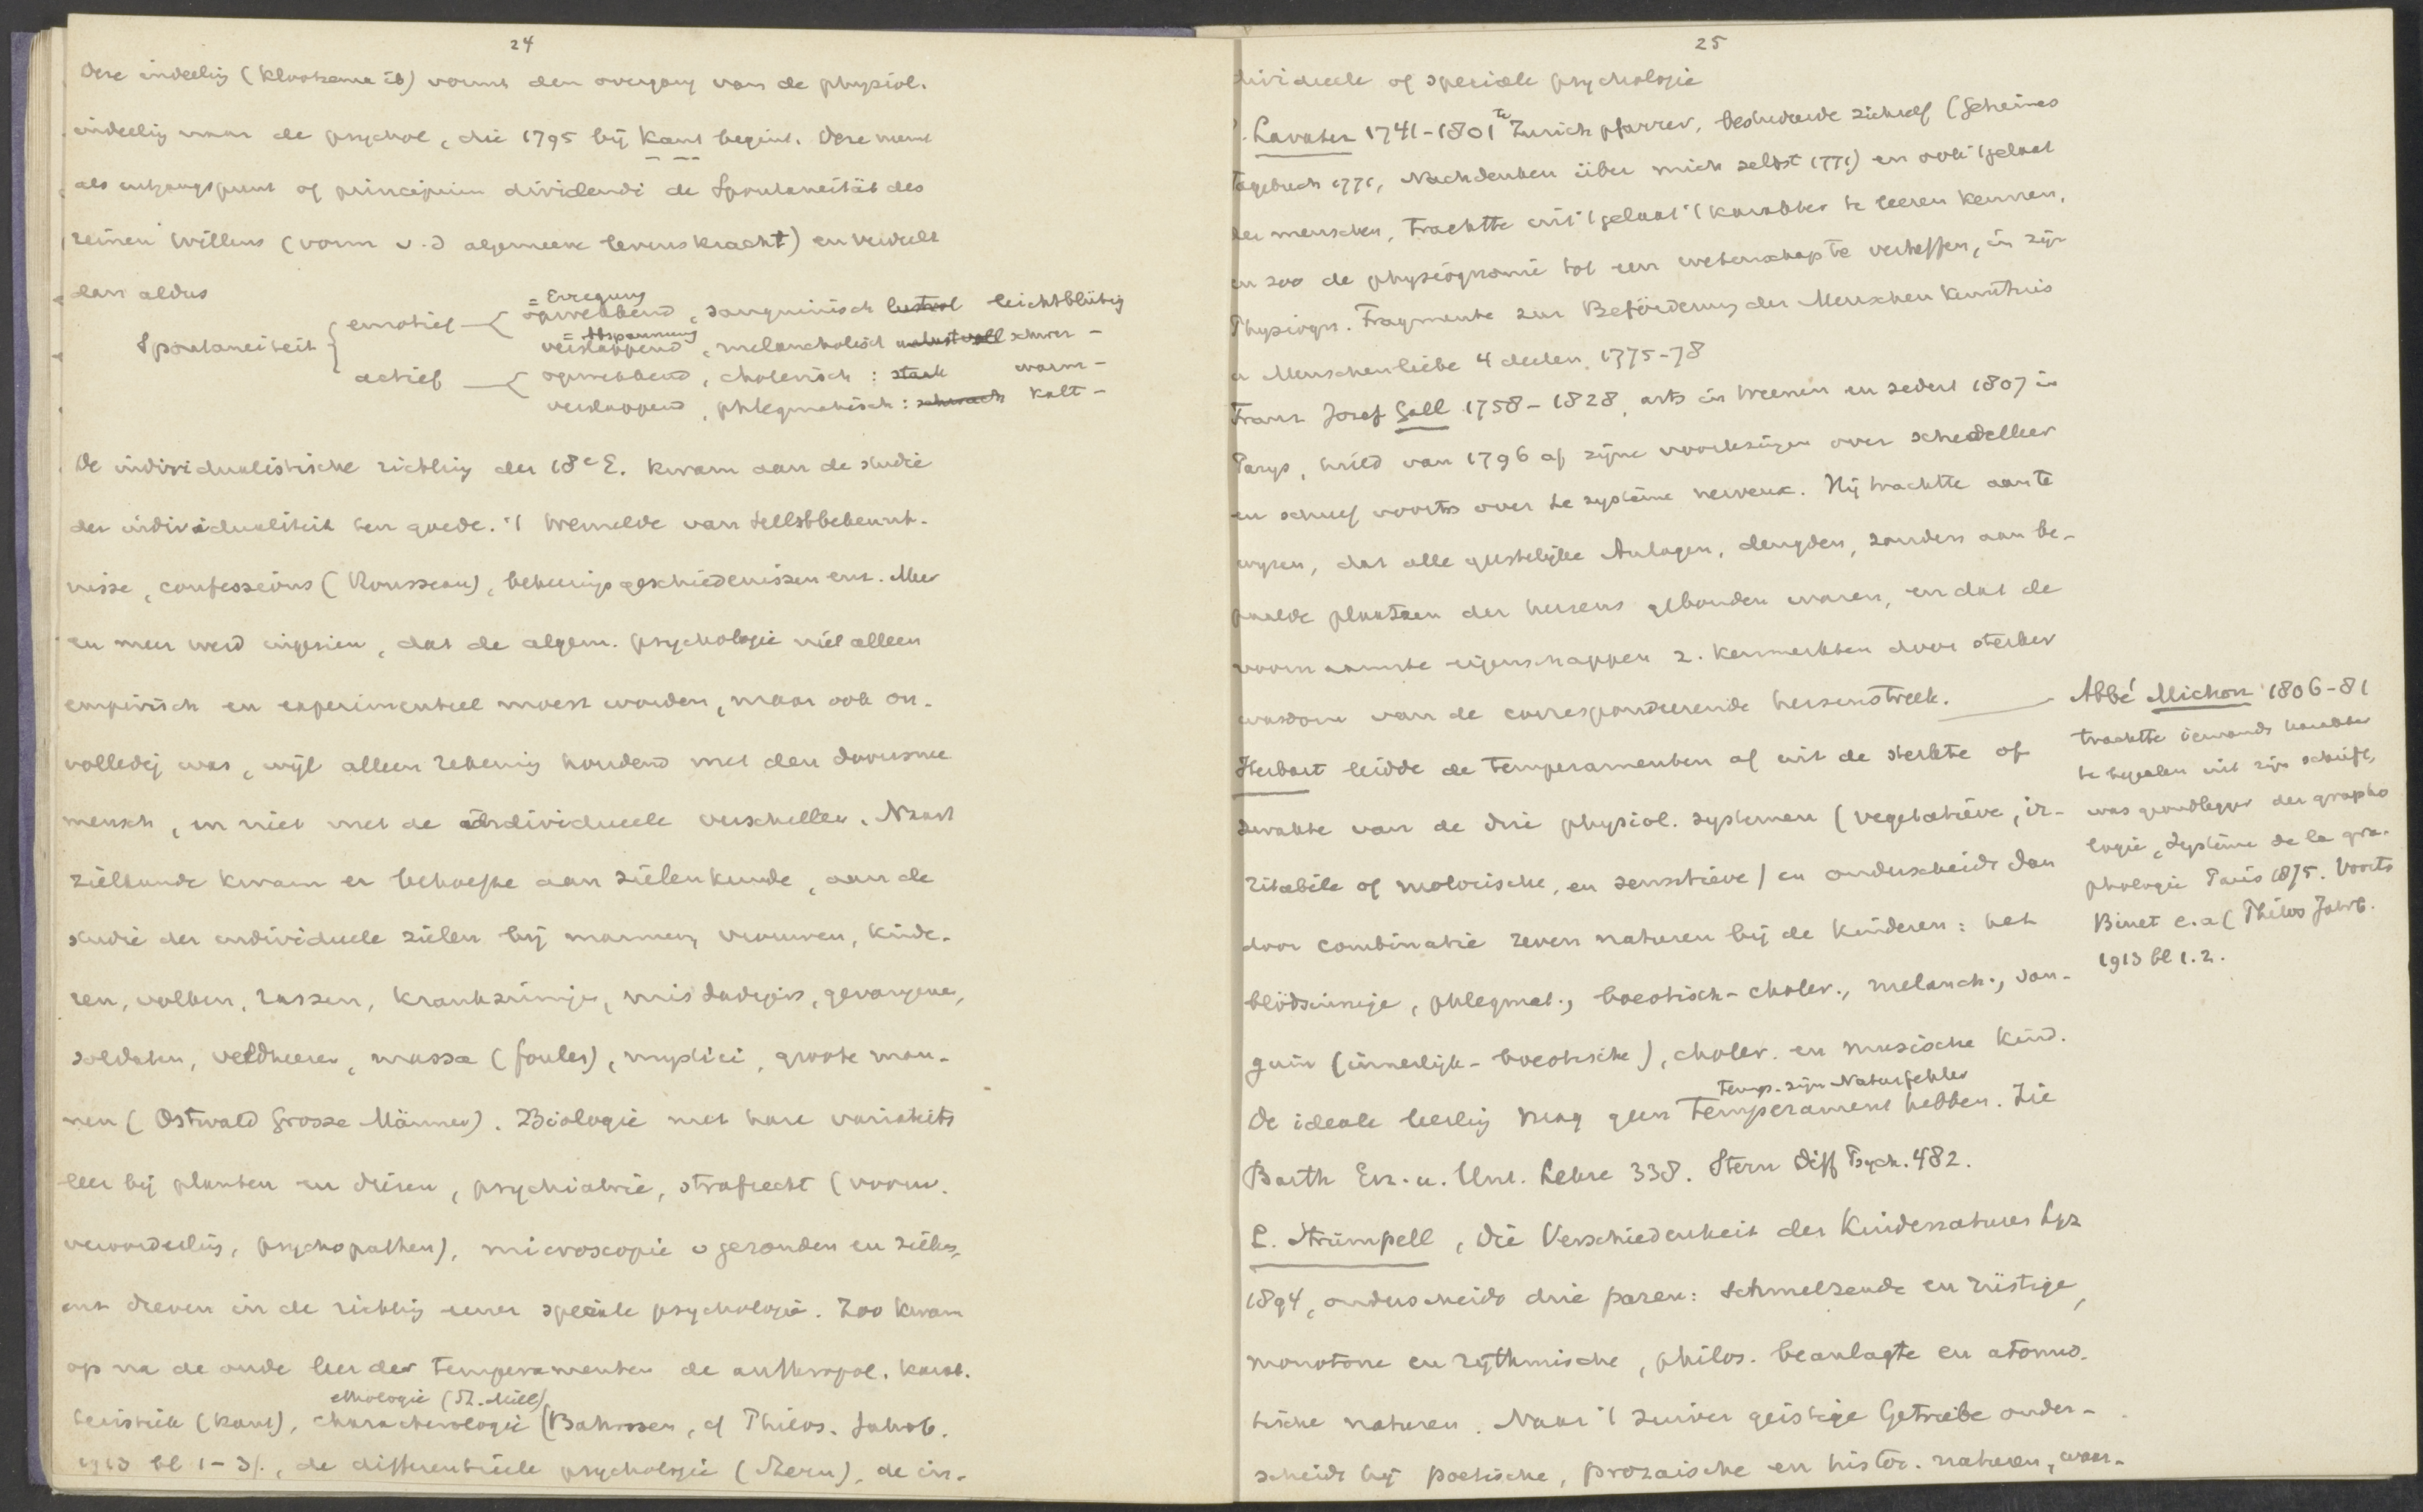 24
Deze indeeling (Klootsema ib) vormt den overgang van de physiol.
indeeling naar de psychol, die 1795 bij Kant begint. Deze neemt
als uitgangspunt of principium dividendi de Spontaneität des
reinen Willens (vorm v.d algemeene levenskracht) en verdeelt
dan aldus
= Erregung
opwekkend, sanguinisch lustvol leichtblütig
Spontaneiteit emotief
= Abspannung
verslappend, melancholisch unlustvoll schwer -
actief opwekkend, cholerisch : stark warm -
verslappend, phlegmatisch : schwach kalt -
De individualistische richting der 18e E. kwam aan de studie
der individualiteit ten goede. 't Wemelde van Selbstbekennt-
nisse, confessions (Rousseau), bekeeringsgeschiedenissen enz. Meer
en meer werd ingezien, dat de algem. psychologie niet alleen
empirisch en experimenteel moest worden, maar ook on-
volledig was, wijl alleen rekening houdend met den doorsnee
mensch, en niet met de individueele verschillen. Naast
zielkunde kwam er behoefte aan zielenkunde, aan de
studie der individueele zielen bij mannen, vrouwen, kinde-
ren, volken, rassen, krankzinnige, misdadigers, gevangene,
soldaten, veldheeren, massa (foules), mystici, groote man-
nen (Ostwald Grosse Männer). Biologie met hare variabiteits
leer bij planten en dieren, psychiatrie, strafrecht (voorw.
veroordeeling, psychopathen), microscopie v gezonden en zieken,
enz dreven in de richting eener speciale psychologie. Zoo kwam
op na de oude leer der temperamenten de anthropol. karak-
ethologie (St. Mill)
teristiek (Kant), characterologie (Bahnsen, cf Philos. Jahrb.
1913 bl 1-31., de differentieele psychologie (Stern), de in-
25
dividueele of speciale psychologie
. Lavater 1741-1801 te Zurich pfarrer, bestudeerde zichzelf (Geheimes
Tagebuch 1771, Nachdenken über mich selbst 1771) en ook 't gelaat
der menschen, trachtte uit 't gelaat 't karakter te leeren kennen,
en zoo de physiognomie tot een wetenschap te verheffen, in zijn
Physiogn. Fragmente zur Beförderung der Menschen Kenntnis
u Menschenliebe 4 deelen, 1775-78
Franz Josef Gall 1758-1828, arts in Weenen en sedert 1807 in
Parijs, hield van 1796 af zijne voorlezingen over schedelleer
en schreef voorts over le système nerveux. Hij trachtte aan te
wijzen, dat alle geestelijke Anlagen, deugden, zonden aan be-
paalde plaatsen der hersens gebonden waren, en dat de
voornaamste eigenschappen z. kenmerkten door sterker
wasdom van de correspondeerende hersenstreek.
Herbart leidde de temperamenten af uit de sterkte of
zwakte van de drie physiol. systemen (vegetatieve, ir-
ritabele of motorische, en sensitieve) en onderscheidt dan
door combinatie zeven naturen bij de kinderen : het
blödsinnige, phlegmat., boeotisch-choler., melanch., san-
guin (innerlijk-boeotische), choler. en musische kind.
temp. zijn Naturfehler
De ideale leerling mag geen Temperament hebben. Zie
Barth Erz. u. Unt. Lehre 338. Stern Diff Psych. 482.
L. Strümpell, Die Verschiedenheit der Kindernaturen Lpz
1894, onderscheidt drie paren: schmelzende en rüstige,
monotone en rythmische, philos. beanlagte en atomis-
tische naturen. Naar 't zuiver geistige Getriebe onder-
scheidt hij poetische, prozaische en histor. naturen, waar-
Abbé Michon 1806-81
trachtte iemands karakter
te bepalen uit zijn schrift,
was grondlegger der grapho
logie, Système de la gra-
phologie Paris 1875. Voorts
Binet e.a (Philos Jahrb.
1913 bl 1.2.